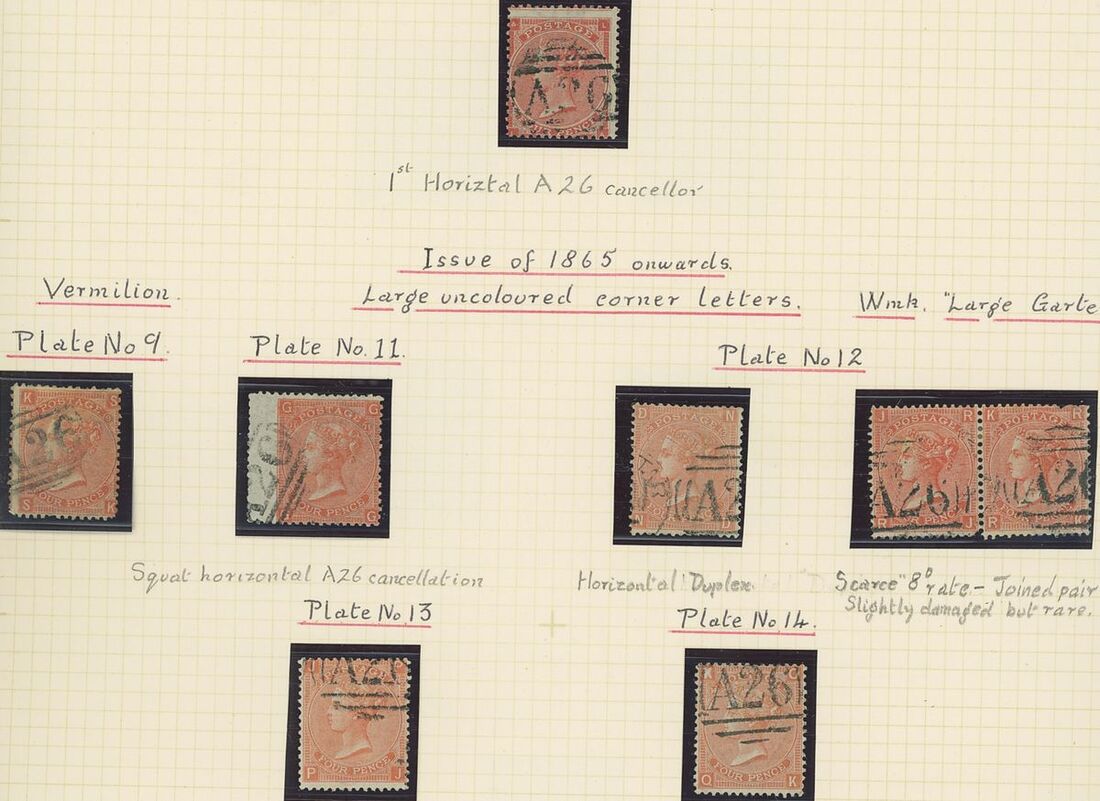 4 L
POSTAGE
A26
FOUR PENCE
1st Horiztal A26 cancellor
Issue of 1865 onwards.
Vermilion.
Large uncoloured corner letters.
Wmk. "Large Garte
Plate No 9.
Plate No. 11.
Plate No 12
K S
POSTAGE
A26
FOUR PENCE
S K
G G
POSTAGE
A26
FOUR PENCE
G
D
POSTAGE
A2
J R
POSTAGE
A26
FOUR PENCE
R J
K R
POSTAGE
A26
R
Squat horizontal A26 cancellation
Horizontal Duplex
Scarce "8D rate - Joined pair
Slightly damaged but rare.
Plate No. 13
Plate No. 14.
J P
A26
FOUR PENCE
P J
K Q
A26
FOUR PENCE
Q K